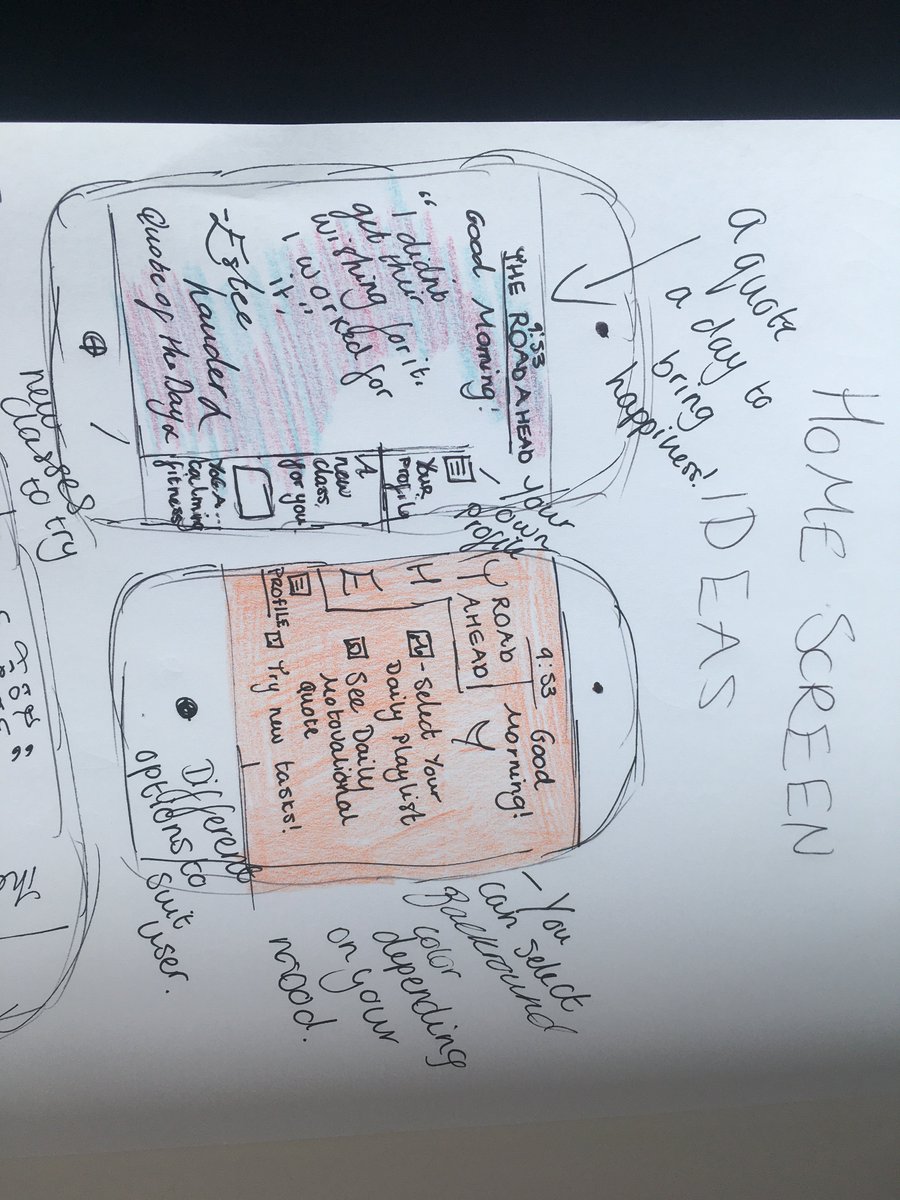 HOME SCREEN
IDEAS
a quote
a day to
bring
happiness!
9:53
THE ROAD AHEAD
Good Morning!
"I didnt
get their
wishing for it.
I worked for
it"
- Estee
Lauderd
Quote of the Day
Your
Profile
A
new
class
for you!
YOGA...
calming
fitness
Your
own
Profile
new
classes
to try
9:53
Good
Morning!
THE
ROAD
AHEAD
- Select Your
Daily Playlist
See Daily
Motovational
Quote
PROFILE
Try new tasks!
Different
options to
suit
user.
- You
can select
Backround
color
depending
on your
mood.
The